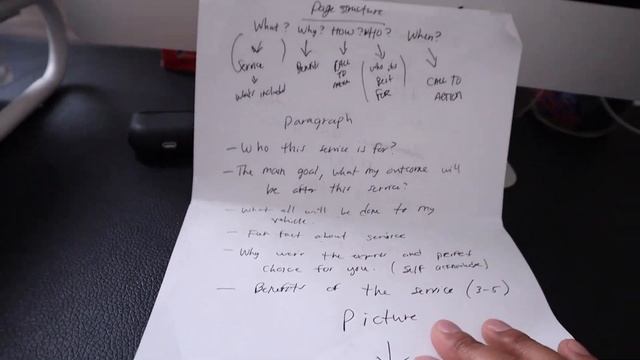 Page structure
What? Why? HOW? WHO? When?
Service Benefits CALL TO who is CALL TO
whats included best FOR ACTION
Paragraph
- Who this service is for?
- The main goal, what my outcome will
be after this service?
- What all will be done to my
vehicle
- Fun fact about service
- Why were the experts and perfect
choice for you. (self acknowledge)
- Benefits of the service (3-5)
Picture